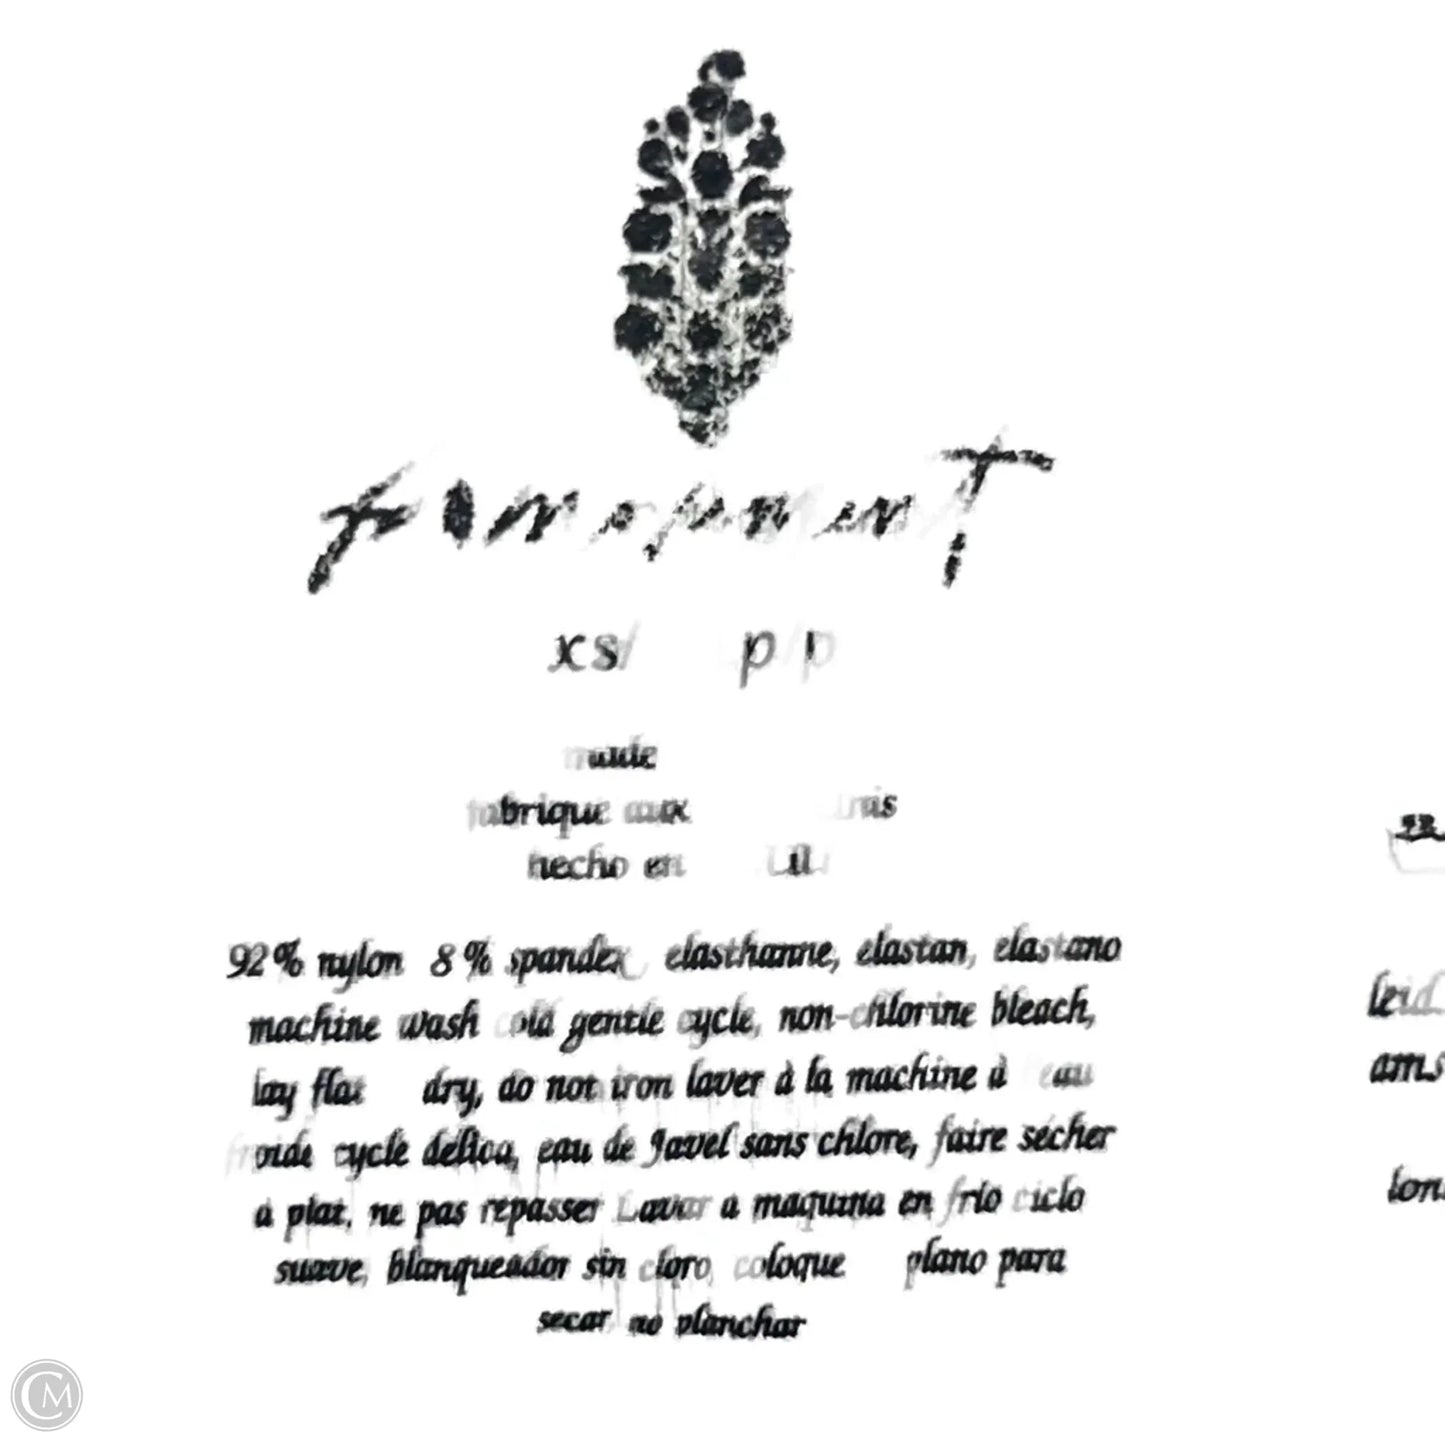 xs/ p/p
made
fabrique aux
hecho en
92% nylon 8% spandex elasthanne, elastan, elastano
machine wash cold gentle cycle, non-chlorine bleach,
lay flat dry, do not iron laver à la machine à l'eau
froide cycle délica, eau de Javel sans chlore, faire sécher
à plat, ne pas repasser Lavar a maquina en frío ciclo
suave, blanqueador sin cloro, coloque plano para
secar, no planchar
leid
ams
lons
CM